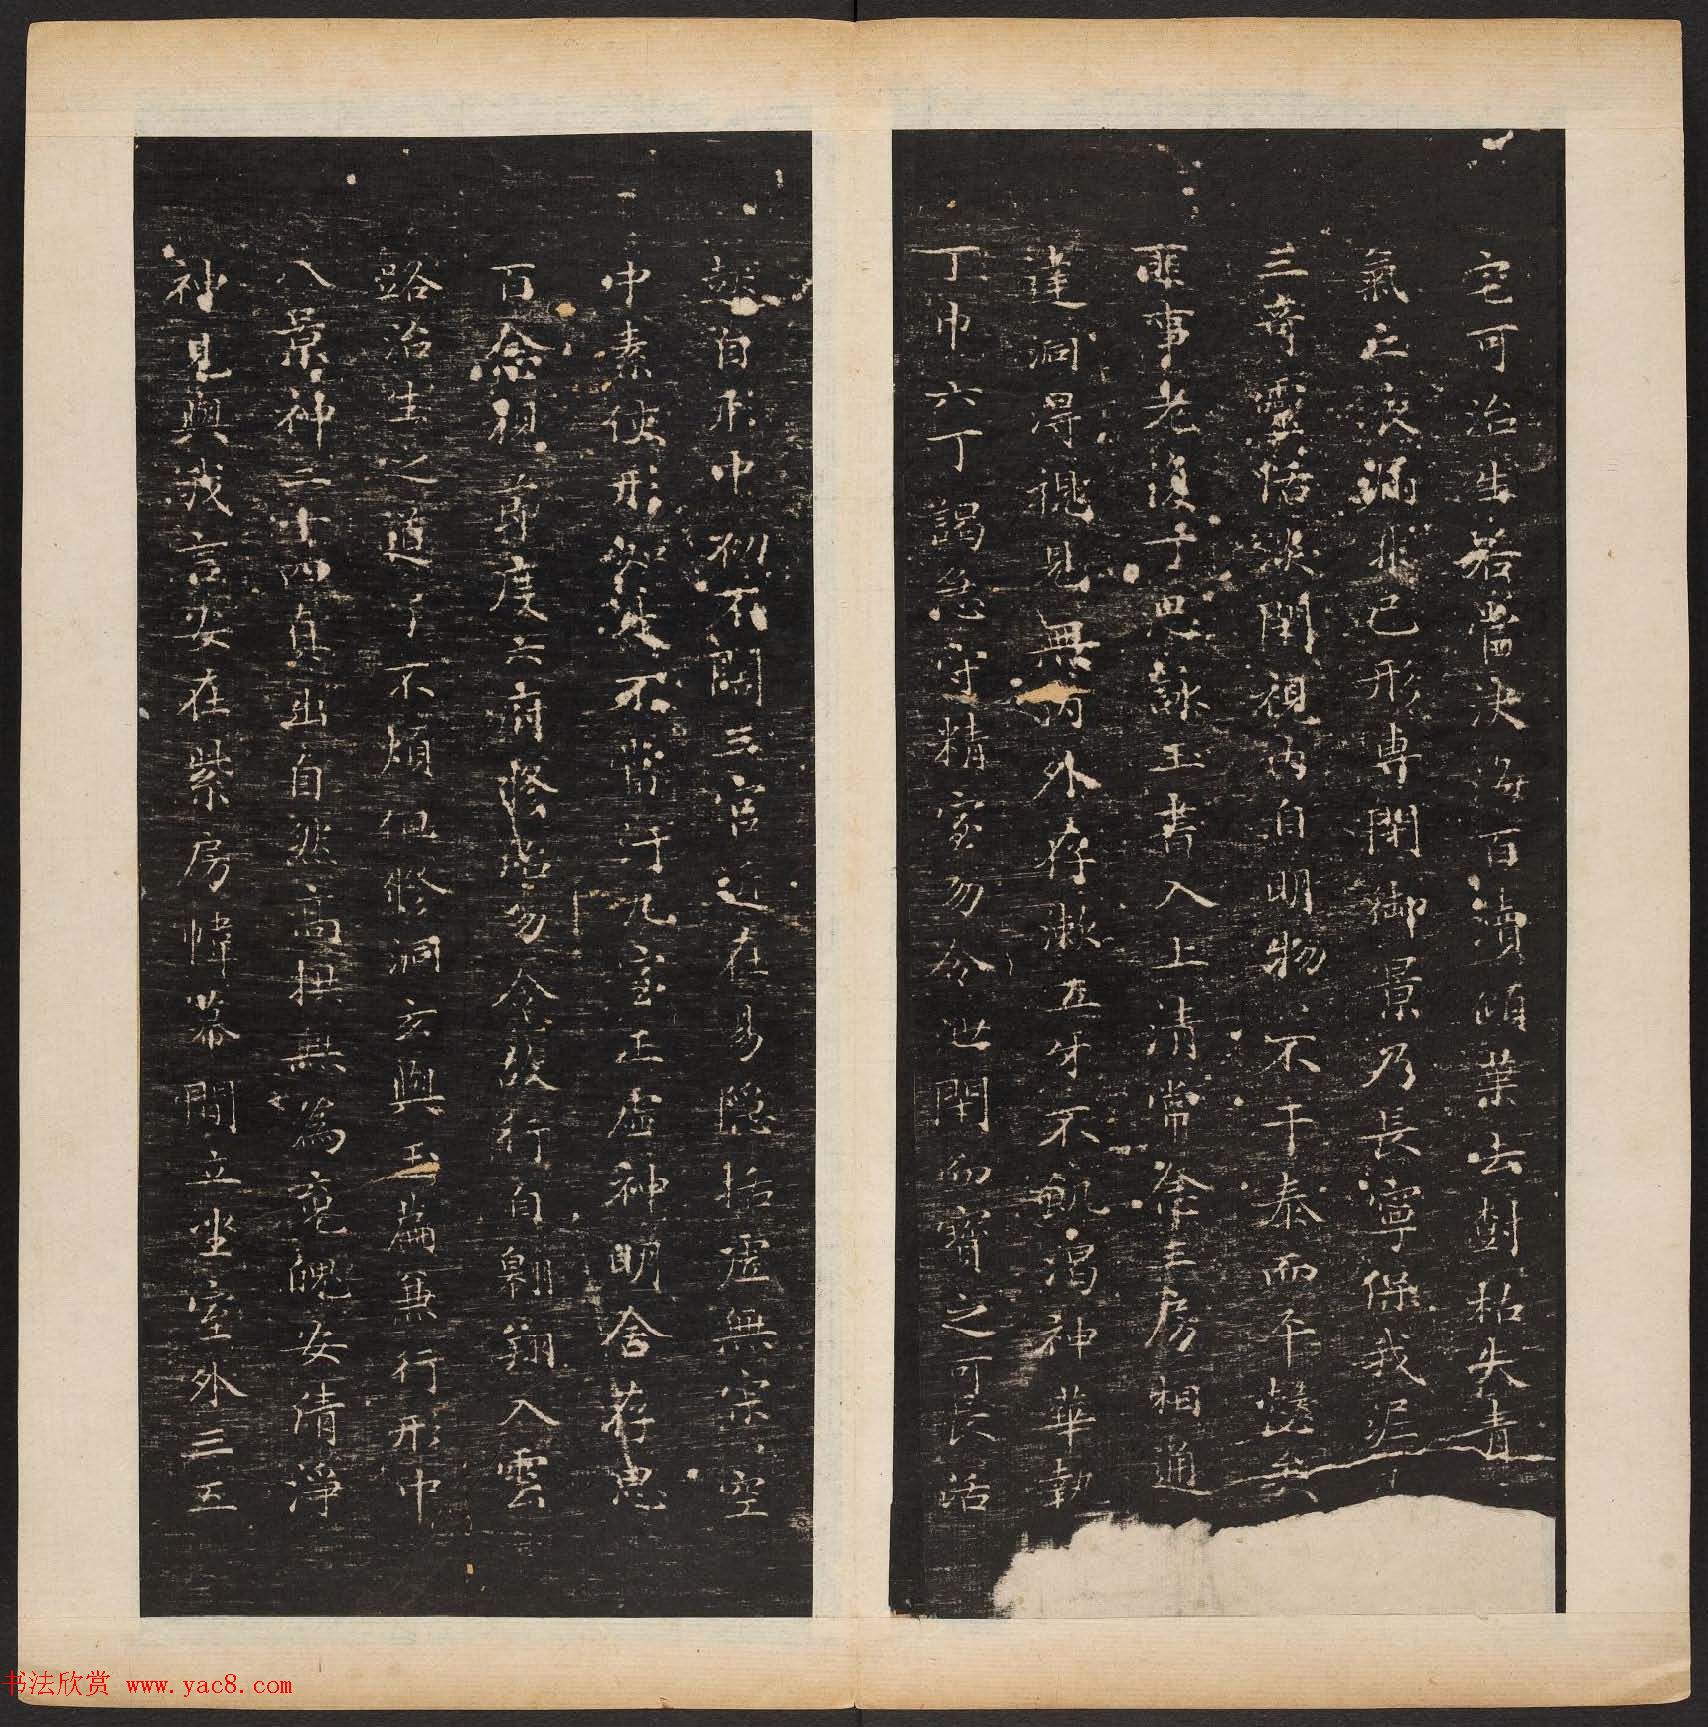 宅可治生若當決海百瀆傾葉去樹枯失青
氣亡液漏非己形專閉御景乃長寧保我泥
三奇靈恬淡閉視內自明物物不干泰而平愨矣
匪事老復丁思詠玉書入上清常念三房相通
達洞得視見無內外存漱五牙不飢渴神華執
丁巾六丁謁急守精室勿令泄閉而寶之可長活
起自形中初不闊三官近在易隱括虛無寂寂空
中素使形如是不當汙九室正虛神明舍存思
百念視節度六府修治勿令故行自翱翔入雲
路治生之道了不煩但修洞玄與玉篇兼行形中
八景神二十四真出自然高拱無為魂魄安清淨
神見與我言安在紫房幃幕間立坐室外三五
书法欣赏 www.yac8.com